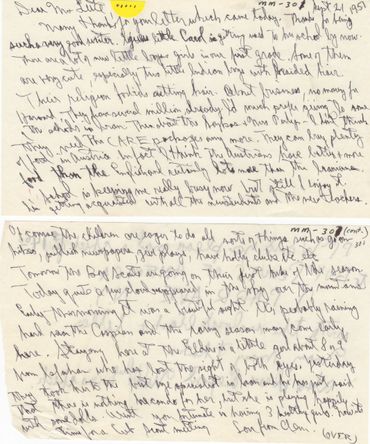 mm-30
Sept 21, 1951
Dear Mrs Little
Many thanks for your letter which came today. Thanks for being
such a very good writer. I guess little Carol is going used to school by now.
There are a lot of new little boys & girls in our first grade. Some of them
are very cute, especially this little Indian boy with braided hair.
Their religion forbids cutting hair. No money for
Harvard. They have several million already. I'd much prefer giving to some
school in Iran. I don't think
they need the CARE packages any more. They can buy plenty
of food in Austria. In fact I think the Austrians have better & more
food than the English and certainly lots more than the Iranians.
School is keeping me really busy now but still I enjoy it.
getting acquainted with all the new students and the new teachers.
mm-30 (cont.)
Of course the children are eager to do all sorts of things such as go on
hikes, publish newspapers, give plays, have hobby clubs etc etc
Tomorrow the Boy Scouts are going on their first hike of the season.
Today quite a few clouds appeared in the sky over the mountains
early this morning. It was a beautiful sight. It's probably raining
hard near the Caspian and the rainy season may come early
here. Staying here at the Elders is a little girl about 8 or 9
from Isfahan who has lost the sight of both eyes. Yesterday
they took her to the best eye specialist in Iran and he just said
that there is nothing to be done for her, but she is playing happily
with some dolls. fortunate in having 3 lovely girls, how is
Tim? Love from Clem.
(OVER)